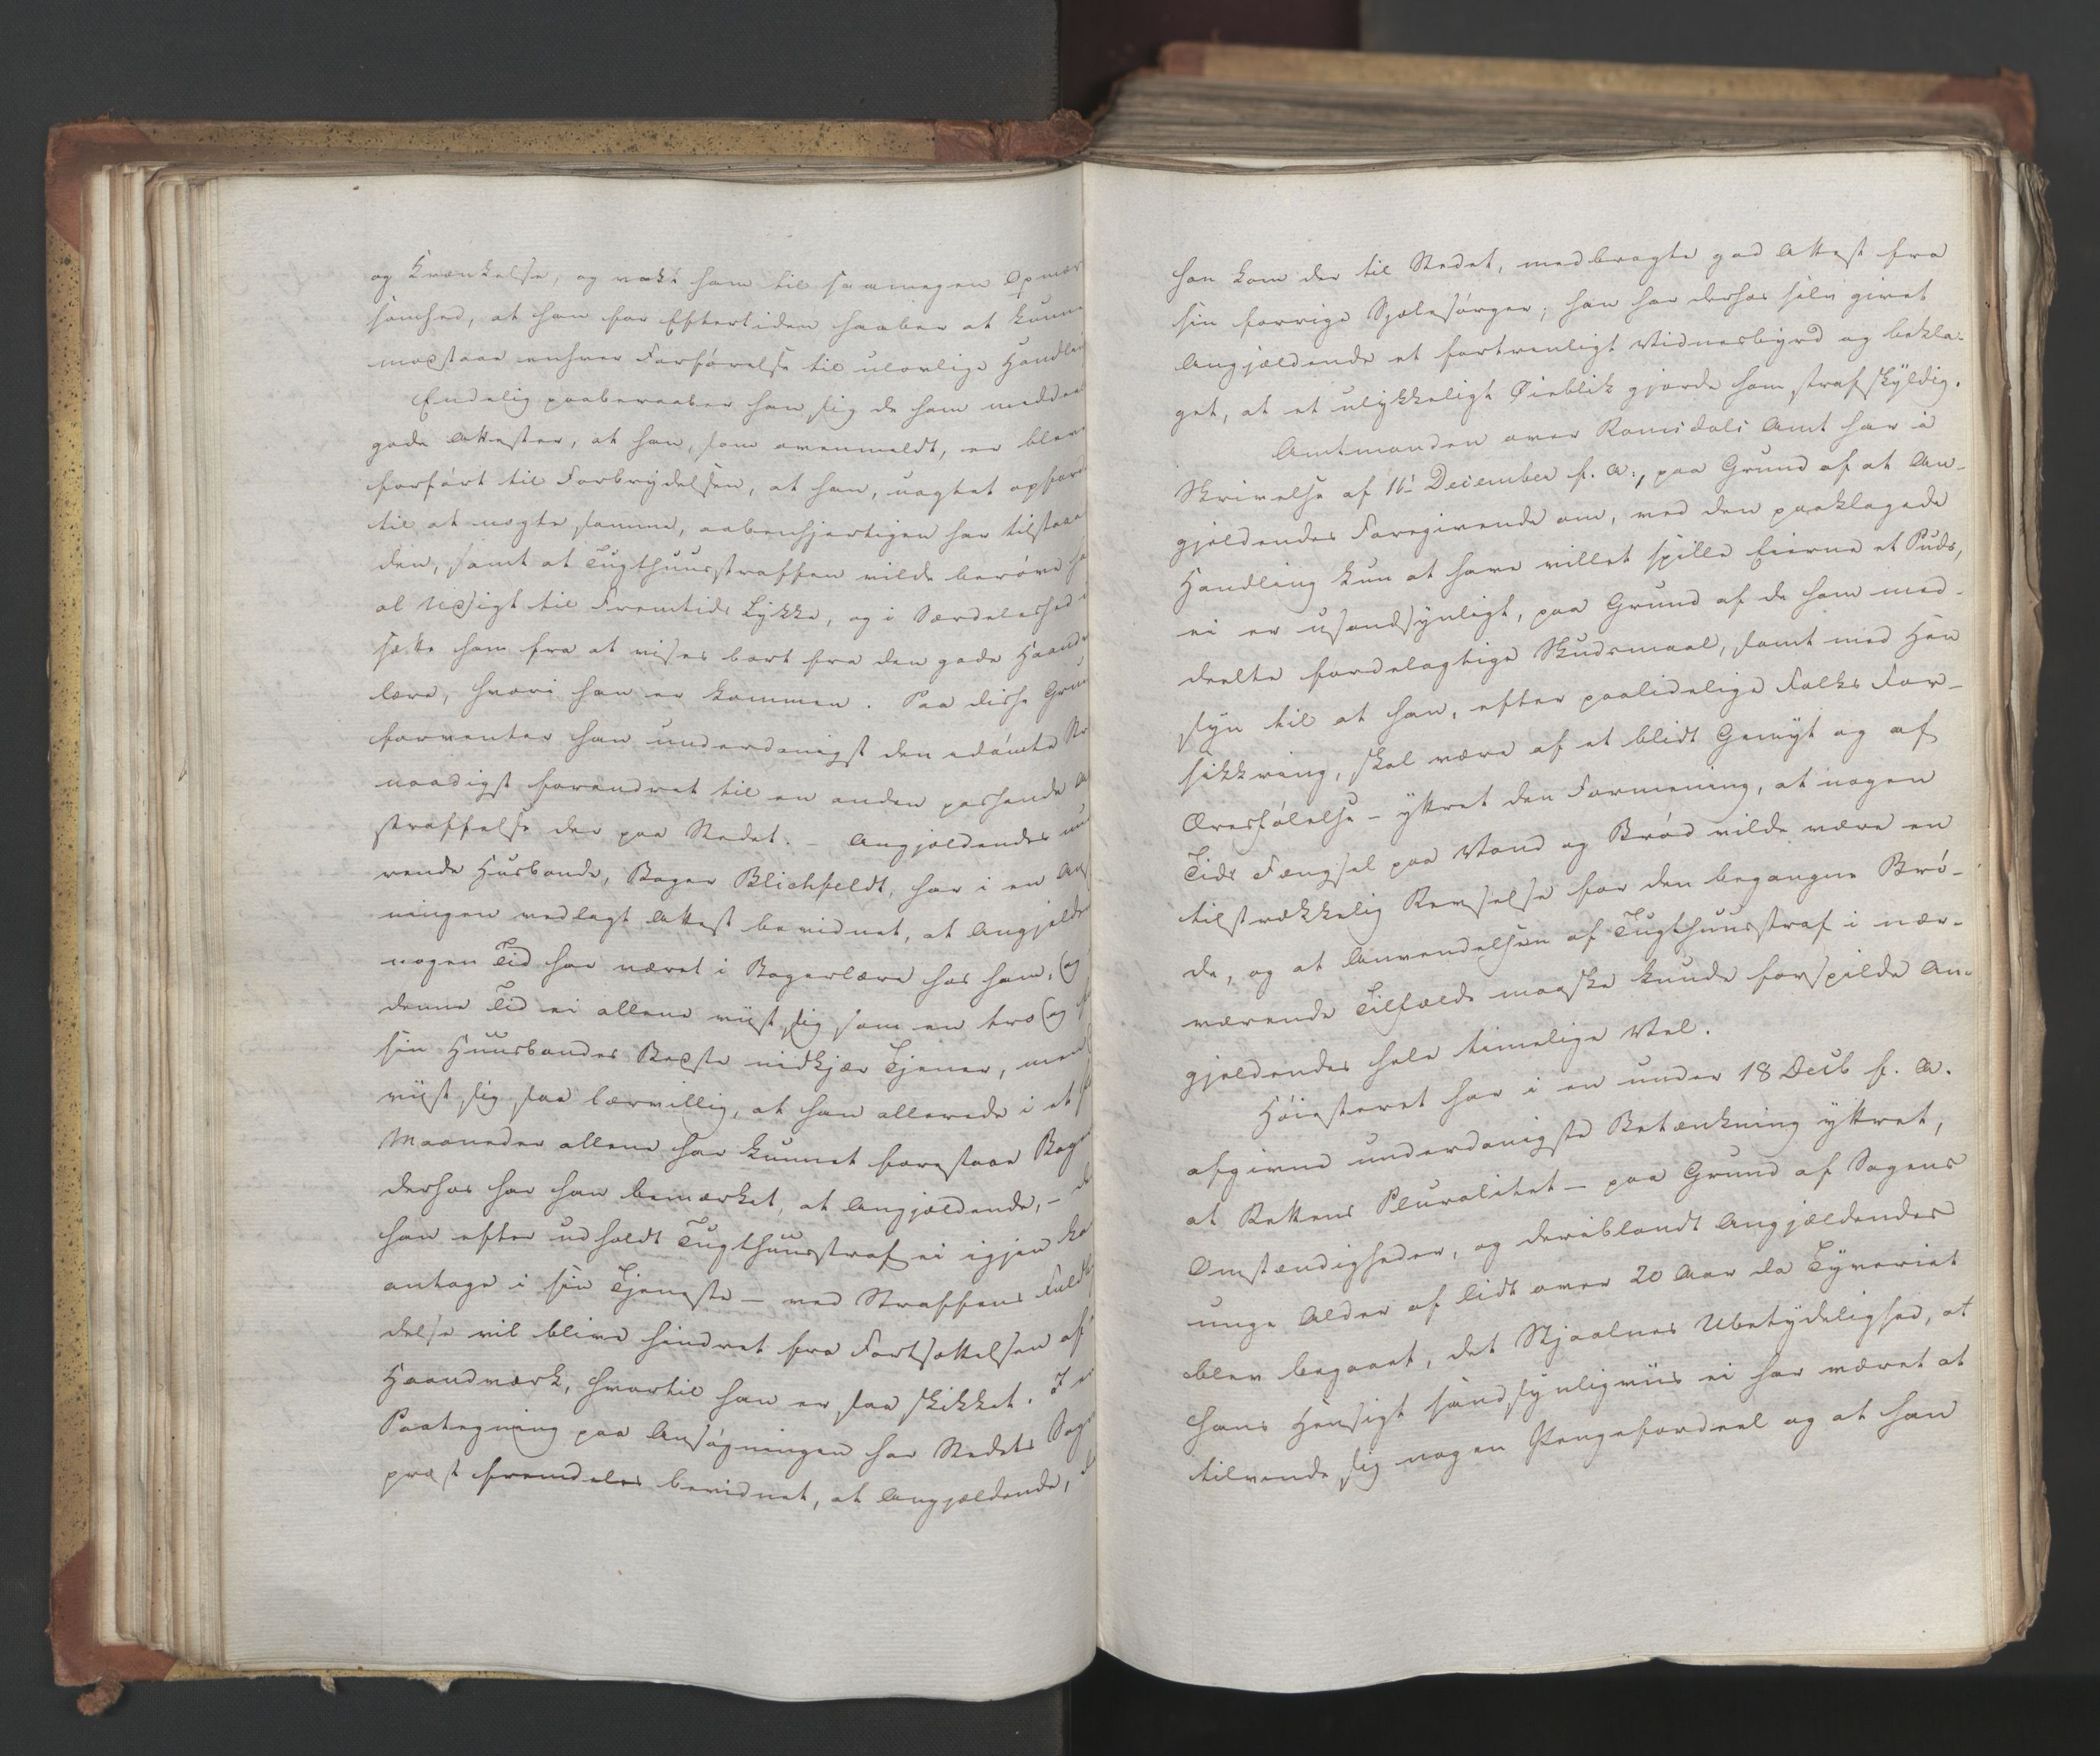 og Krænkelse, og vakt ham til saamegen Opmær
somhed, at han for Eftertiden haaber at kunne
modstaae enhver Forførelse til ulovlige Handlin
Endelig paaberaaber han sig de ham meddeel
gode Attester, at han, som ovenmeldt, er bleve
forført til Forbrydelsen, at han, uagtet opford
til at nægte samme, aabenhjertigen har tilstaae
den, samt at Tugthuusstraffen vilde berøve ha
al Udsigt til Fremtids Lykke, og i Særdeleshed
sætte ham fra at vises bort fra den gode Haand
lære, hvori han er kommen. Paa disse Gru
forventer han underdanigst den idømte Str
naadigst forandret til en anden passende A
straffelse der paa Stedet. – Angjældendes nu
rende Husbonde, Bager Blichfeldt, har i en An
ningen vedlagt Attest bevidnet, at Angjelde
nogen Tid har været i Bagerlære hos ham, (og
denne Tid ei allene viist sig som en tro (og f
sin Huusbondes Bedste nidkjær Tjener, men
viist sig saa lærvillig, at han allerede i et
Maaneder allene har kunnet forestaae Bag
derhos har han bemærket, at Angjældende, – d
han efter udholdt Tugthuusstraf ei igjen ka
antage i sin Tjeneste – ved Straffens Fuldby
delse vil blive hindret fra Fortsættelsen af
Haandværk, hvortil han er saa skikket. I e
Paategning paa Ansøgningen har Stedets Sog
præst fremdeles bevidnet, at Angjældende, d
han kom der til Stedet, medbragte god Attest fra
sin forrige Sjælesørger; han har derhos selv givet
Angjældende et fortrinligt Vidnesbyrd og bekla-
get, at et ulykkeligt Øieblik gjorde ham strafskyldig.
Amtmanden over Romsdals Amt har i
Skrivelse af 16 December f. A., paa Grund af at An-
gjeldendes Foregivende om, ved den paaklagede
Handling kun at have villet spille Eierne et Puds,
ei er usandsynligt, paa Grund af de ham med-
deelte fordelagtige Skudsmaal, samt med Hen
syn til at han, efter paalidelige Folks For-
sikkring, skal være af et blidt Gemyt og af
Æresfølelse – yttret den Formening, at nogen
Tids Fængsel paa Vand og Brød vilde være en
tilstrækkelig Revselse for den begangne Brø-
de, og at Anvendelsen af Tugthuusstraf i nær-
værende Tilfælde maaske kunde forspilde An-
gjeldendes hele timelige Vel.
Høiesteret har i en under 18 Decb f. A.
afgivne underdanigste Betænkning yttret,
at Rettens Pluralitet – paa Grund af Sagens
Omstændigheder, og deriblandt Angjældendes
unge Alder af lidt over 20 Aar da Tyveriet
blev begaaet, det Stjaalnes Ubetydelighed, at
hans Hensigt sandsynligviis ei har været at
tilvende sig nogen Pengefordeel og at han